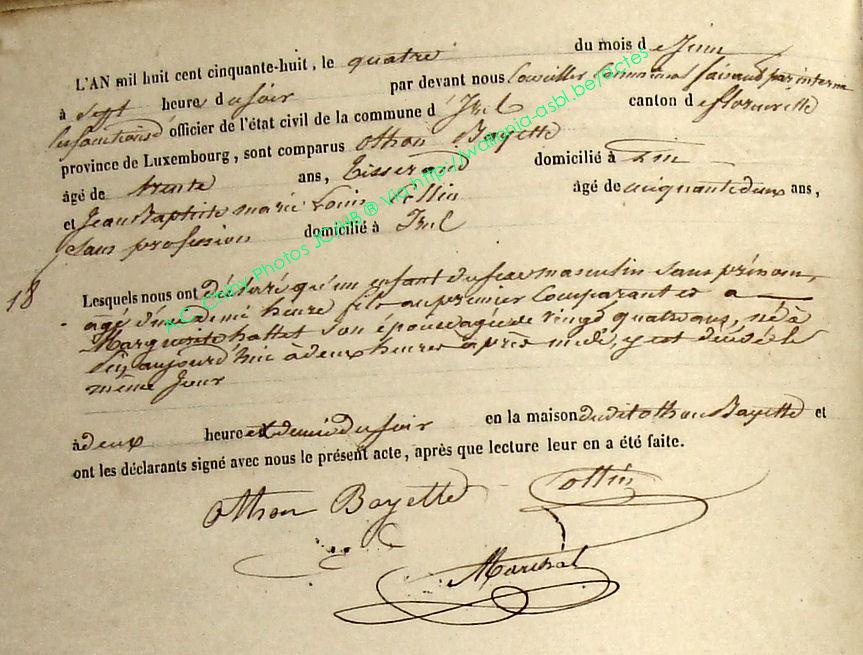 L'AN mil huit cent cinquante-huit, le quatre du mois de Juin
à Sept heure du soir par devant nous Conseiller Communal faisant par interim
les fonctions d'officier de l'état civil de la commune d' Izel canton de florenville
province de Luxembourg, sont comparus Othon Bayette
âgé de trente ans, tisserand domicilié à
et Jean Baptiste marie Louis Collin âgé de cinquante deux ans,
sans profession domicilié à Izel
18 Lesquels nous ont déclaré qu'un enfant du sexe masculin sans prénom,
agé d'une demi heure fils au premier Comparant et a
Marguerite hattet son épouse agée de vingt quatre ans, né à
aujourd'hui à deux heures après midi, y est décédé le
même jour
à deux heure et demie du soir en la maison dudit othon Bayette et
ont les déclarants signé avec nous le présent acte, après que lecture leur en a été faite.
Othon Bayette Collin
Maréchal
A.C. Chiny Photos JCHB ® Via http://wallonia-asbl.be/actes